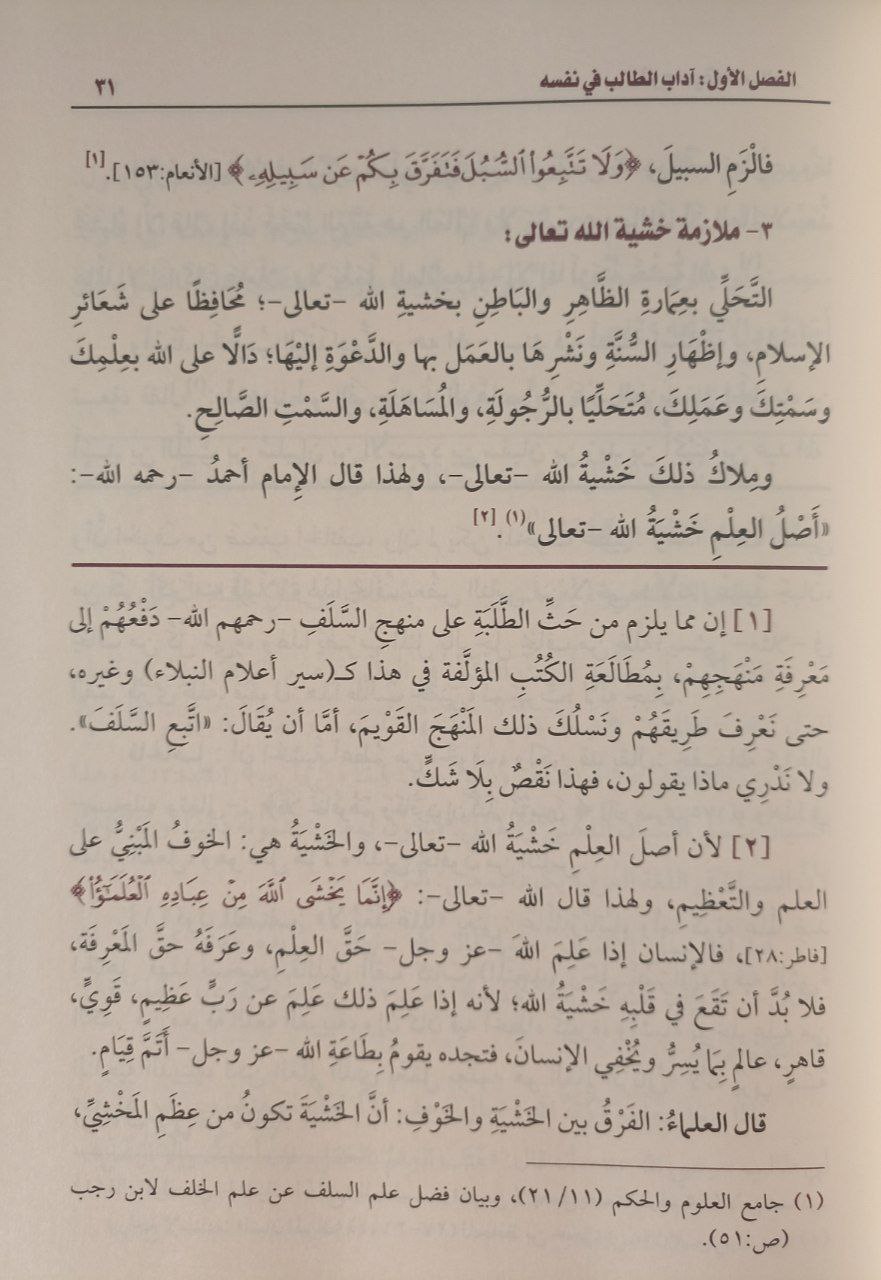 الفصل الأول: آداب الطالب في نفسه ٣١
فالْزَمِ السبيلَ، ﴿وَلَا تَتَّبِعُواْ ٱلسُّبُلَ فَتَفَرَّقَ بِكُمۡ عَن سَبِيلِهِۦ﴾ [الأنعام:١٥٣].[١]
٣- ملازمة خشية الله تعالى:
التَّحَلِّي بعِمَارةِ الظَّاهِرِ والبَاطِنِ بخشيةِ الله -تعالى-؛ مُحَافِظًا على شَعَائرِ
الإسلامِ، وإظْهَارِ السُّنَّةِ ونَشْرِهَا بالعَمَل بها والدَّعْوَةِ إليْهَا؛ دَالًّا على الله بعِلْمِكَ
وسَمْتِكَ وعَمَلِكَ، مُتَحَلِّيًا بالرُّجُولَةِ، والمُسَاهَلَةِ، والسَّمْتِ الصَّالِحِ.
ومِلاكُ ذلكَ خَشْيةُ الله -تعالى-، ولهذا قال الإمام أحمدُ -رحمه الله-:
«أَصْلُ العِلْمِ خَشْيَةُ الله -تعالى»(١).[٢]
[١] إن مما يلزم من حَثِّ الطَّلَبَةِ على منهجِ السَّلَفِ -رحمهم الله- دَفْعُهُمْ إلى
مَعْرِفَةِ مَنْهَجِهِمْ، بِمُطَالَعَةِ الكُتُبِ المؤلَّفة في هذا كـ(سير أعلام النبلاء) وغيره،
حتى نَعْرِفَ طَرِيقَهُمْ ونَسْلُكَ ذلك المَنْهَجَ القَوْيمَ، أمَّا أن يُقَالَ: «اتَّبِعِ السَّلَفَ».
ولا نَدْرِي ماذا يقولون، فهذا نَقْصٌ بِلَا شَكٍّ.
[٢] لأن أصلَ العِلْمِ خَشْيَةُ الله -تعالى-، والخَشْيَةُ هي: الخوفُ المَبْنِيُّ على
العلم والتَّعْظِيمِ، ولهذا قال الله -تعالى-: ﴿إِنَّمَا يَخۡشَى ٱللَّهَ مِنۡ عِبَادِهِ ٱلۡعُلَمَٰٓؤُاْ﴾
[فاطر:٢٨]، فالإنسان إذا عَلِمَ اللهَ -عز وجل- حَقَّ العِلْمِ، وعَرَفَهُ حقَّ المَعْرِفَة،
فلا بُدَّ أن تَقَعَ في قَلْبِهِ خَشْيَةُ الله؛ لأنه إذا عَلِمَ ذلك عَلِمَ عن رَبٍّ عَظِيمٍ، قَوِيٍّ،
قاهرٍ، عالمٍ بِمَا يُسِرُّ ويُخْفِي الإنسانَ، فتجده يقومُ بِطَاعَةِ الله -عز وجل- أَتَمَّ قِيَامٍ.
قال العلماءُ: الفَرْقُ بين الخَشْيَةِ والخَوْفِ: أنَّ الخَشْيَةَ تكونُ من عِظَمِ المَخْشِيِّ،
(١) جامع العلوم والحكم (٢١/١١)، وبيان فضل علم السلف عن علم الخلف لابن رجب
(ص:٥١).